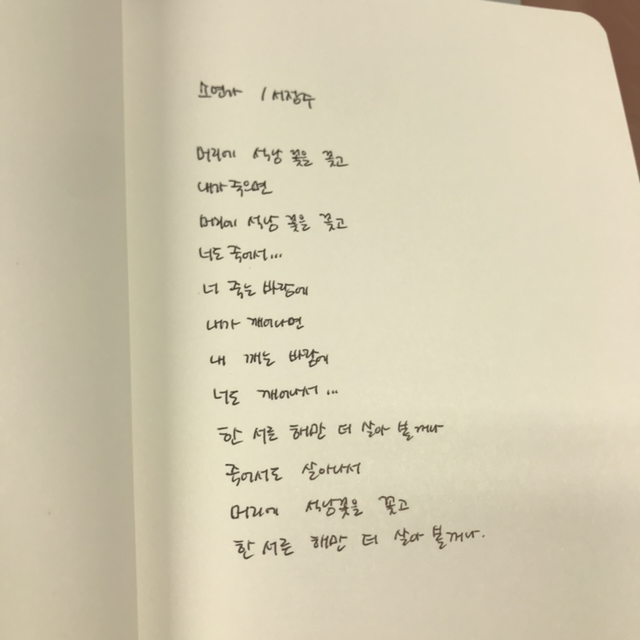 소연가 / 서정주
머리에 석남 꽃을 꽂고
내가 죽으면
머리에 석남 꽃을 꽂고
너도 죽어서...
너 죽는 바람에
내가 깨어나면
내 깨는 바람에
너도 깨어나서...
한 서른 해만 더 살아 볼꺼나
죽어서도 살아나서
머리에 석남꽃을 꽂고
한 서른 해만 더 살아 볼꺼나.